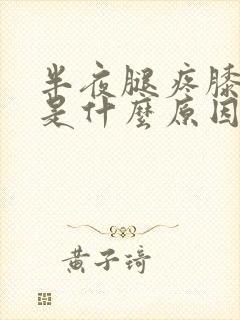 半夜腿疼膝
是什麼原因
黄子琦